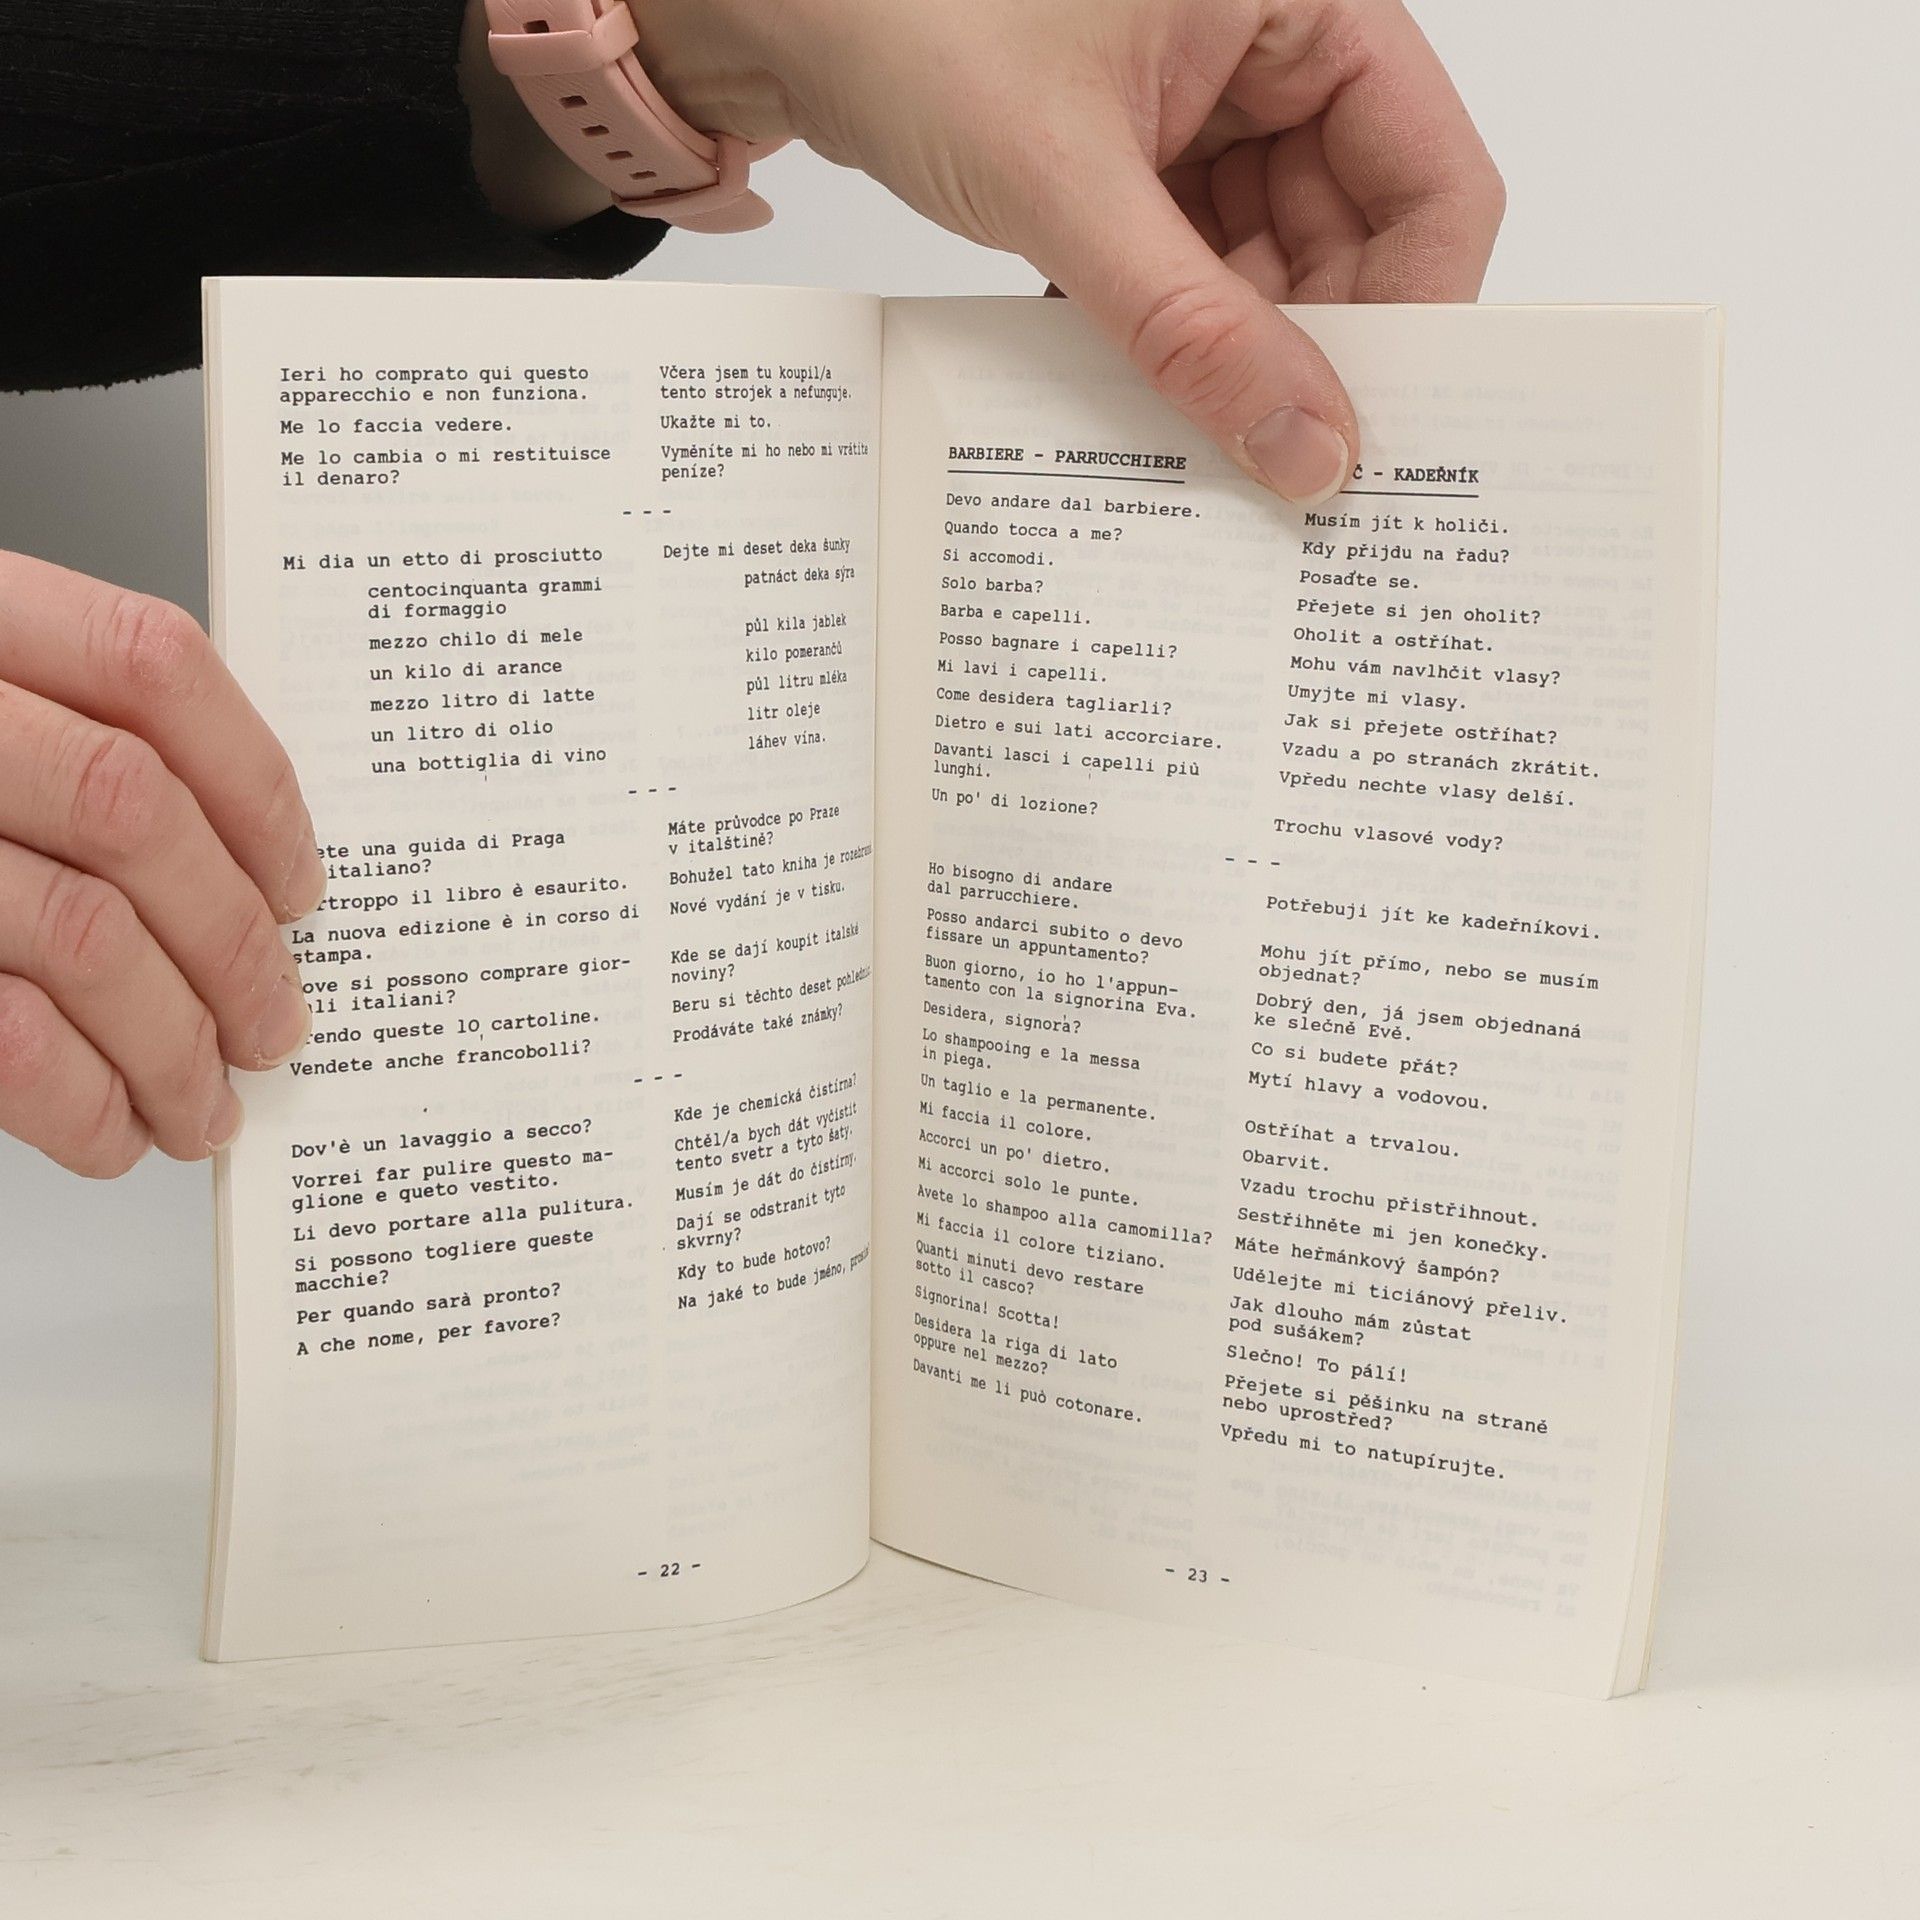 Ieri ho comprato qui questo
apparecchio e non funziona.
Me lo faccia vedere.
Me lo cambia o mi restituisce
il denaro?
Včera jsem tu koupil/a
tento strojek a nefunguje.
Ukažte mi to.
Vyměníte mi ho nebo mi vrátíte
peníze?
- - -
Mi dia un etto di prosciutto
centocinquanta grammi
di formaggio
mezzo chilo di mele
un kilo di arance
mezzo litro di latte
un litro di olio
una bottiglia di vino
Dejte mi deset deka šunky
patnáct deka sýra
půl kila jablek
kilo pomerančů
půl litru mléka
litr oleje
láhev vína.
- - -
una guida di Praga
italiano?
il libro è esaurito.
La nuova edizione è in corso di
stampa.
si possono comprare gior-
italiani?
queste lO cartoline.
Vendete anche francobolli?
Máte průvodce po Praze
v italštině?
Bohužel tato kniha je rozebrana
Nové vydání je v tisku.
Kde se dají koupit italské
noviny?
Beru si těchto deset pohlednic
Prodáváte také známky?
- - -
Dov'è un lavaggio a secco?
Vorrei far pulire questo ma-
glione e queto vestito.
Li devo portare alla pulitura.
Si possono togliere queste
macchie?
Per quando sarà pronto?
A che nome, per favore?
Kde je chemická čistírna?
Chtěl/a bych dát vyčistit
tento svetr a tyto šaty.
Musím je dát do čistírny.
Dají se odstranit tyto
skvrny?
Kdy to bude hotovo?
Na jaké to bude jméno, prosím?
- 22 -
BARBIERE - PARRUCCHIERE
- KADEŘNÍK
Devo andare dal barbiere.
Quando tocca a me?
Si accomodi.
Solo barba?
Barba e capelli.
Posso bagnare i capelli?
Mi lavi i capelli.
Come desidera tagliarli?
Dietro e sui lati accorciare.
Davanti lasci i capelli più
lunghi.
Un po' di lozione?
Musím jít k holiči.
Kdy přijdu na řadu?
Posaďte se.
Přejete si jen oholit?
Oholit a ostříhat.
Mohu vám navlhčit vlasy?
Umyjte mi vlasy.
Jak si přejete ostříhat?
Vzadu a po stranách zkrátit.
Vpředu nechte vlasy delší.
Trochu vlasové vody?
- - -
Ho bisogno di andare
dal parrucchiere.
Posso andarci subito o devo
fissare un appuntamento?
Buon giorno, io ho l'appun-
tamento con la signorina Eva.
Desidera, signora?
Lo shampooing e la messa
in piega.
Un taglio e la permanente.
Mi faccia il colore.
Accorci un po' dietro.
Mi accorci solo le punte.
Avete lo shampoo alla camomilla?
Mi faccia il colore tiziano.
Quanti minuti devo restare
sotto il casco?
Signorina! Scotta!
Desidera la riga di lato
oppure nel mezzo?
Davanti me li può cotonare.
Potřebuji jít ke kadeřníkovi.
Mohu jít přímo, nebo se musím
objednat?
Dobrý den, já jsem objednaná
ke slečně Evě.
Co si budete přát?
Mytí hlavy a vodovou.
Ostříhat a trvalou.
Obarvit.
Vzadu trochu přistřihnout.
Sestřihněte mi jen konečky.
Máte heřmánkový šampón?
Udělejte mi ticiánový přeliv.
Jak dlouho mám zůstat
pod sušákem?
Slečno! To pálí!
Přejete si pěšinku na straně
nebo uprostřed?
Vpředu mi to natupírujte.
- 23 -